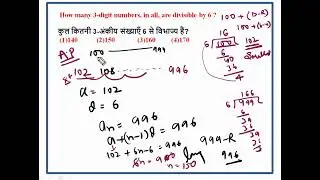 How many 3-digit numbers, in all, are divisible by 6 ?
कुल कितनी 3-अंकीय संख्याएँ 6 से विभाज्य हैं?
(1)140 (2)150 (3)160 (4)170
100 + (D-R)
16
100+(6-
6) 100
6
40
36
4
102
AP
100 999
102 108 996
a = 102
d = 6
an = 996
a + (n-1)d = 996
102 + 6n - 6 = 996
6n = 900
n = 150
166
6) 999
6
39
36
39
36
3
999-R
996